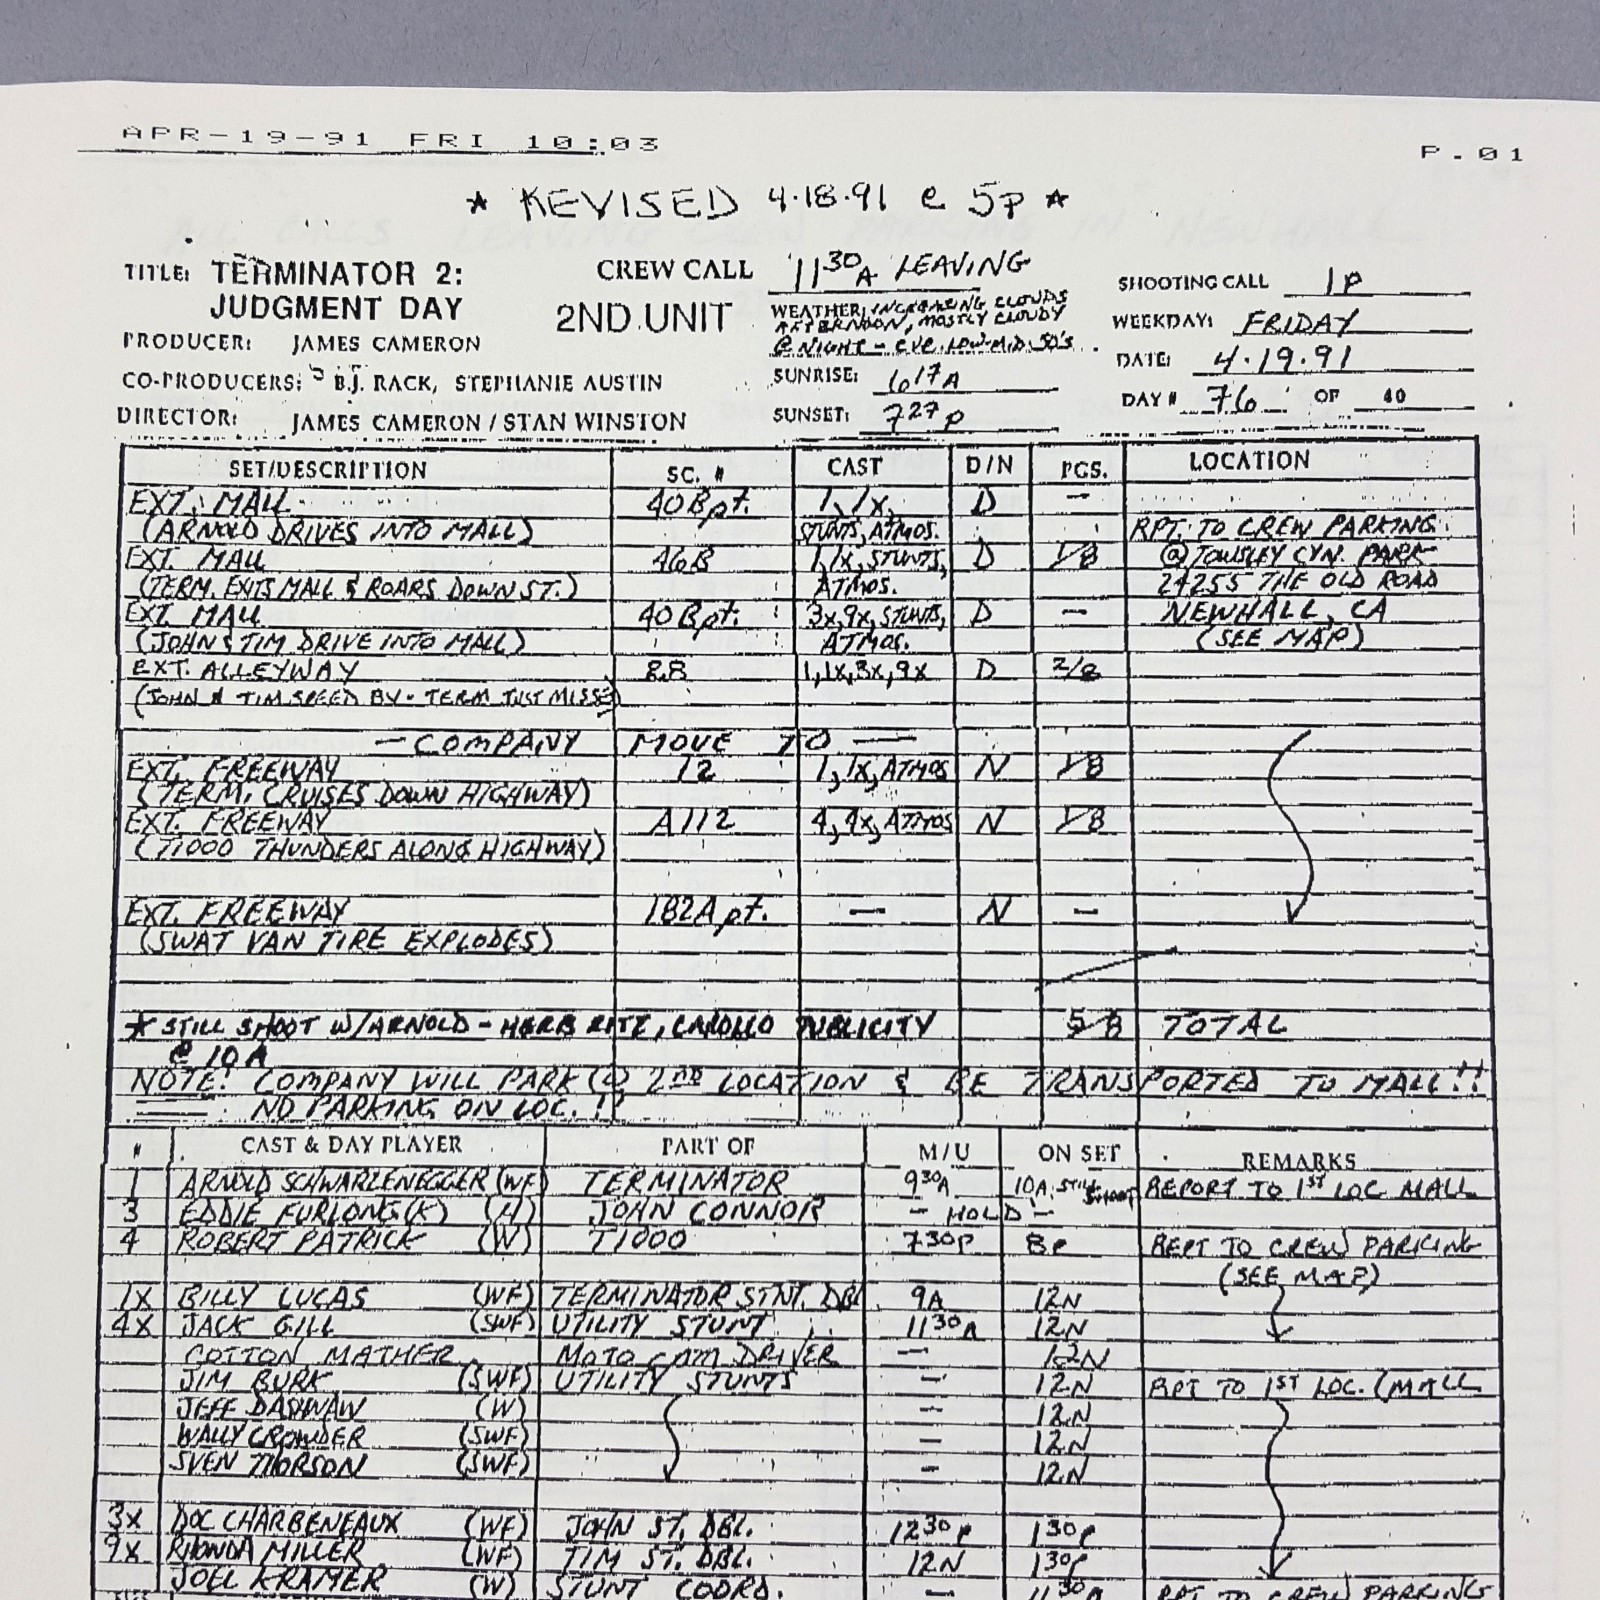 APR-19-91 FRI 10:03 P.01
* REVISED 4.18.91 @ 5P *
TITLE: TERMINATOR 2: JUDGMENT DAY
CREW CALL 11:30A LEAVING
2ND UNIT
SHOOTING CALL 1P
WEATHER: INCREASING CLOUDS
AFTERNOON, MOSTLY CLOUDY
@ NIGHT - EVE. LOW-MID. 50'S
WEEKDAY: FRIDAY
PRODUCER: JAMES CAMERON
DATE: 4.19.91
CO-PRODUCERS: B.J. RACK, STEPHANIE AUSTIN
SUNRISE: 617A
DAY # 76 OF 40
DIRECTOR: JAMES CAMERON / STAN WINSTON
SUNSET: 727P
SET/DESCRIPTION SC. # CAST D/N PGS. LOCATION
EXT. MALL 40B pt. 1, 1x, D —
(ARNOLD DRIVES INTO MALL) STUNTS, ATMOS. RPT. TO CREW PARKING
EXT. MALL 46B 1, 1x, STUNTS, D 1/8 @ TOWSLEY CYN. PARK
(TERM. EXITS MALL & ROARS DOWN ST.) ATMOS. 24255 THE OLD ROAD
EXT. MALL 40B pt. 3x, 9x, STUNTS, D — NEWHALL, CA
(JOHN & TIM DRIVE INTO MALL) ATMOS. (SEE MAP)
EXT. ALLEYWAY 1, 1x, 3x, 9x D 2/8
(JOHN & TIM SPEED BY - TERM JUST MISSES)
— COMPANY MOVE TO —
EXT. FREEWAY 12 1, 1x, ATMOS N 1/8
(TERM. CRUISES DOWN HIGHWAY)
EXT. FREEWAY A112 4, 4x, ATMOS N 1/8
(T1000 THUNDERS ALONG HIGHWAY)
EXT. FREEWAY 182A pt. — N —
(SWAT VAN TIRE EXPLODES)
* STILL SHOOT W/ARNOLD - HERB RITZ, PUBLICITY 5/8 TOTAL
@ 10A
NOTE: COMPANY WILL PARK @ 2ND LOCATION & BE TRANSPORTED TO MALL!!
NO PARKING ON LOC.!!
# CAST & DAY PLAYER PART OF M/U ON SET REMARKS
1 ARNOLD SCHWARZENEGGER (WF) TERMINATOR 930A 10A, STILL SHOOT REPORT TO 1ST LOC MALL
3 EDDIE FURLONG (K) (H) JOHN CONNOR — HOLD —
4 ROBERT PATRICK (W) T1000 730P 8P REPT TO CREW PARKING
(SEE MAP)
1X BILLY LUCAS (WF) TERMINATOR STNT. DBL 9A 12N
4X JACK GILL (SWF) UTILITY STUNT 1130A 12N
COTTON MATHER MOTO CAM DRIVER — 12N
JIM BURK (SWF) UTILITY STUNTS — 12N RPT TO 1ST LOC. (MALL
JEFF DASHNAW (W) — 12N
WALLY CROWDER (SWF) — 12N
SVEN THORSON (SWF) — 12N
3X DOC CHARBENEAUX (WF) JOHN ST. DBL. 1230P 130P
9X RHONDA MILLER (WF) TIM ST. DBL. 12N 130P
JOEL KRAMER (W) STUNT COORD. — 1130A RPT TO CREW PARKING